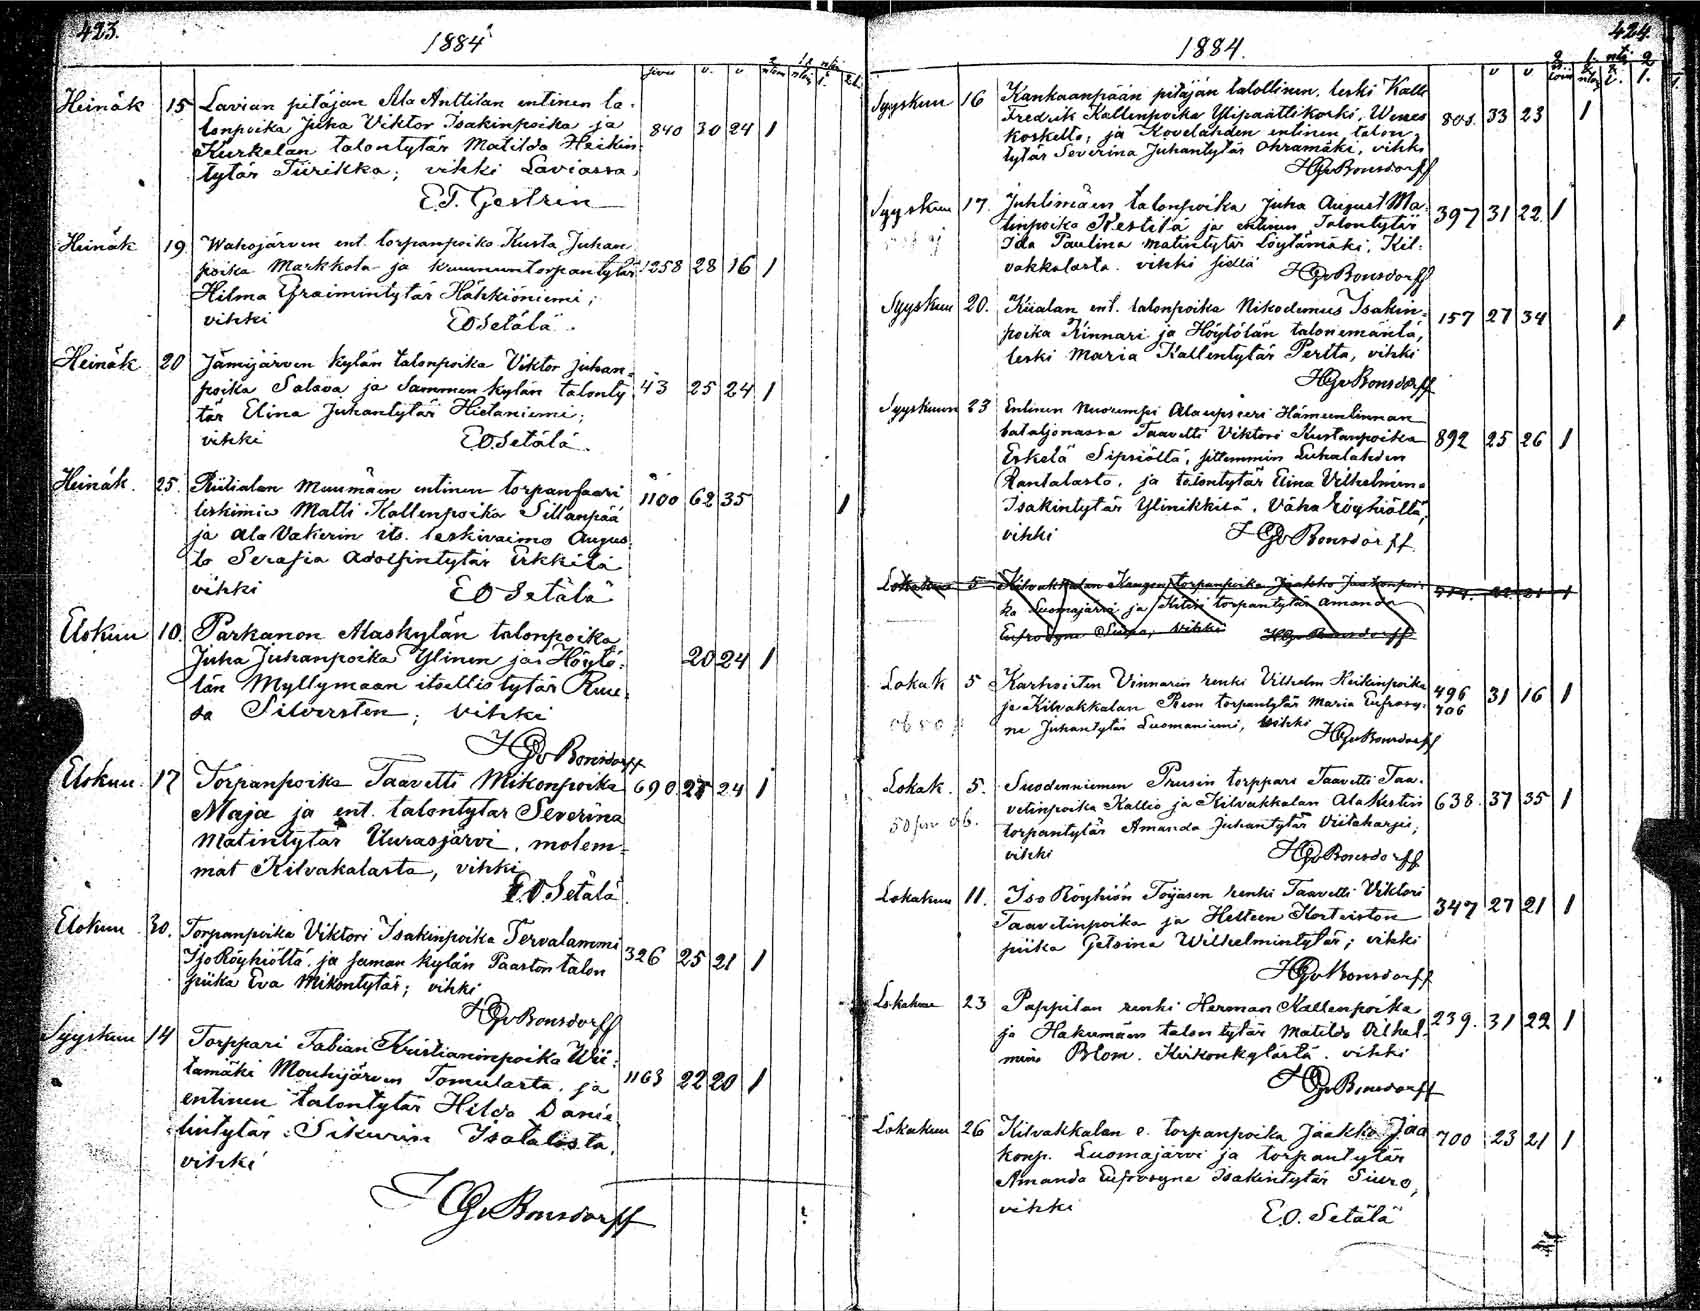 423.
1884
sivu v. v
Heinäk 15 Lavian pitäjän Ala Anttilan entinen ta-
lonpoika Juha Viktor Isakinpoika ja 840 30 24 1
Kurkelan talontytär Matilda Heikin
tytär Tiirikka; vihki Laviassa
E.T. Gestrin
Heinäk 19 Wahojärven ent. torpanpoika Kusta Juhan
poika Markkola ja kruununtorpantytär 1258 28 16 1
Hilma Efraimintytär Häkkiöniemi;
vihki E O Setälä.
Heinäk 20 Jämijärven kylän talonpoika Viktor Juhan-
poika Salava ja Sammen kylän talonty 43 25 24 1
tär Elina Juhantytär Hietaniemi;
vihki E O. Setälä.
Heinäk. 25. Riitialan Muumäen entinen torpanfaari
leskimies Matti Kallenpoika Sillanpää 1100 62 35 1
ja Ala Vakerin its. leskivaimo Augus-
ta Serafia Adolfintytär Erkkilä
vihki E O Setälä
Elokuu 10. Parkanon Alaskylän talonpoika
Juha Juhanpoika Ylinen ja Höytö- 20 24 1
län Myllymaan itsellistytär Ruu-
sa Silfversten; vihki
H G v Bonsdorff
Elokuu 17 Torpanpoika Taavetti Mikonpoika 690 27 24 1
Maja ja ent. talontytär Severina
Matintytär Uurasjärvi, molem-
mat Kilvakalasta, vihki
E.O. Setälä
Elokuu 30. Torpanpoika Viktori Isakinpoika Tervalammi
Iso Röyhiöltä, ja saman kylän Paaston talon 326 25 21 1
piika Eva Mikontytär; vihki
H G v Bonsdorff
Syyskuu 14 Torppari Fabian Kristianinpoika Wii-
tamäki Mouhijärven Tomulasta, ja 1163 22 20 1
entinen talontytär Hilda Danie
lintytär Sikurin Isotalosta,
vihki
H G v Bonsdorff
424.
1884.
v v
Syyskuu 16 Kankaanpään pitäjän talollinen, leski Kalle
Fredrik Kallenpoika Ylipaattikoski, Wenes 805. 33 23 1
koskelta; ja Kovelahden entinen talon-
tytär Severina Juhantytär Ohramäki, vihki
H G v Bonsdorff
Syyskuu 17. Juhtimäen talonpoika Juha August Ma-
tinpoika Kestilä ja entinen Talontytär 397 31 22 1
Ida Paulina Matintytär Löytämäki, Kil-
vakkalasta. vihki siellä H G v Bonsdorff
Syyskuu 20. Kiialan ent. talonpoika Nikodemus Isakin-
poika Kinnari ja Höytölän talonemäntä, 157 27 34 1
leski Maria Kallentytär Pertta, vihki
H G v Bonsdorff
Syyskuun 23 Entinen nuorempi Alaupseeri Hämeenlinnan
bataljonassa Taavetti Viktori Kustanpoika 892 25 26 1
Erkelä Sipsiöltä, sittemmin Luhalahden
Rantalasta, ja talontytär Eina Vilhelmiina
Isakintytär Ylinikkilä, Vähä Röyhiöltä,
vihki H G v Bonsdorff.
Lokakuu 5 Kilvakkalan torpanpoika Jaakko Jaakonpoi-
ka Luomajärvi ja torpantytär Amanda
Eufrosyne Siuro, vihki H G v Bonsdorff
Lokak 5 Karhoisten Vinnarin renki Vilhelm Heikinpoika 496 31 16 1
ja Kilvakkalan torpantytär Maria Eufrosy- 706
ne Juhantytär Luomaniemi, vihki H G v Bonsdorff
Lokak. 5. Suodenniemen Prusin torppari Taavetti Taa-
vetinpoika Kallio ja Kilvakkalan Ala Kestin 638. 37 35 1
50 torpantytär Amanda Juhantytär Viitaharju;
vihki H G v Bonsdorff
Lokakuu 11. Iso Röyhiön Toijasen renki Taavetti Viktori
Taavetinpoika ja Helteen Korteiston 347 27 21 1
piika Gelsina Wilhelmintytär; vihki
H G v Bonsdorff
Lokakuu 23 Pappilan renki Herman Kallenpoika
ja Hakumäen talontytär Matilda Vilhel- 239. 31 22 1
mina Blom. Kirkonkylästä. vihki
H G v Bonsdorff
Lokakuu 26 Kilvakkalan e. torpanpoika Jaakko Jaa 700 23 21 1
konp. Luomajärvi ja torpantytär
Amanda Eufrosyne Isakintytär Siuro,
vihki
E.O. Setälä